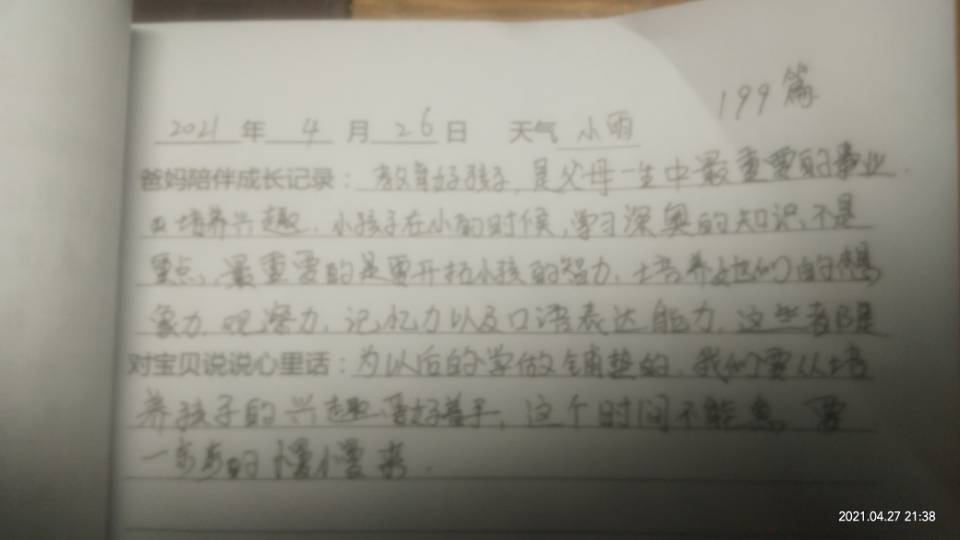 199篇
2021 年 4 月 26 日 天气 小雨
爸妈陪伴成长记录：教育好孩子，是父母一生中最重要的事业.
培养兴趣．小孩子在小的时候，学习深奥的知识，不是
重点、最重要的是要开拓小孩的智力．培养他们的想
象力.观察力.记忆力以及口语表达能力.这些都是
对宝贝说说心里话：为以后的学做铺垫的．我们要从培
养孩子的兴趣 着手，这个时间不能急．要
一步步的慢慢来．
2021.04.27 21:38